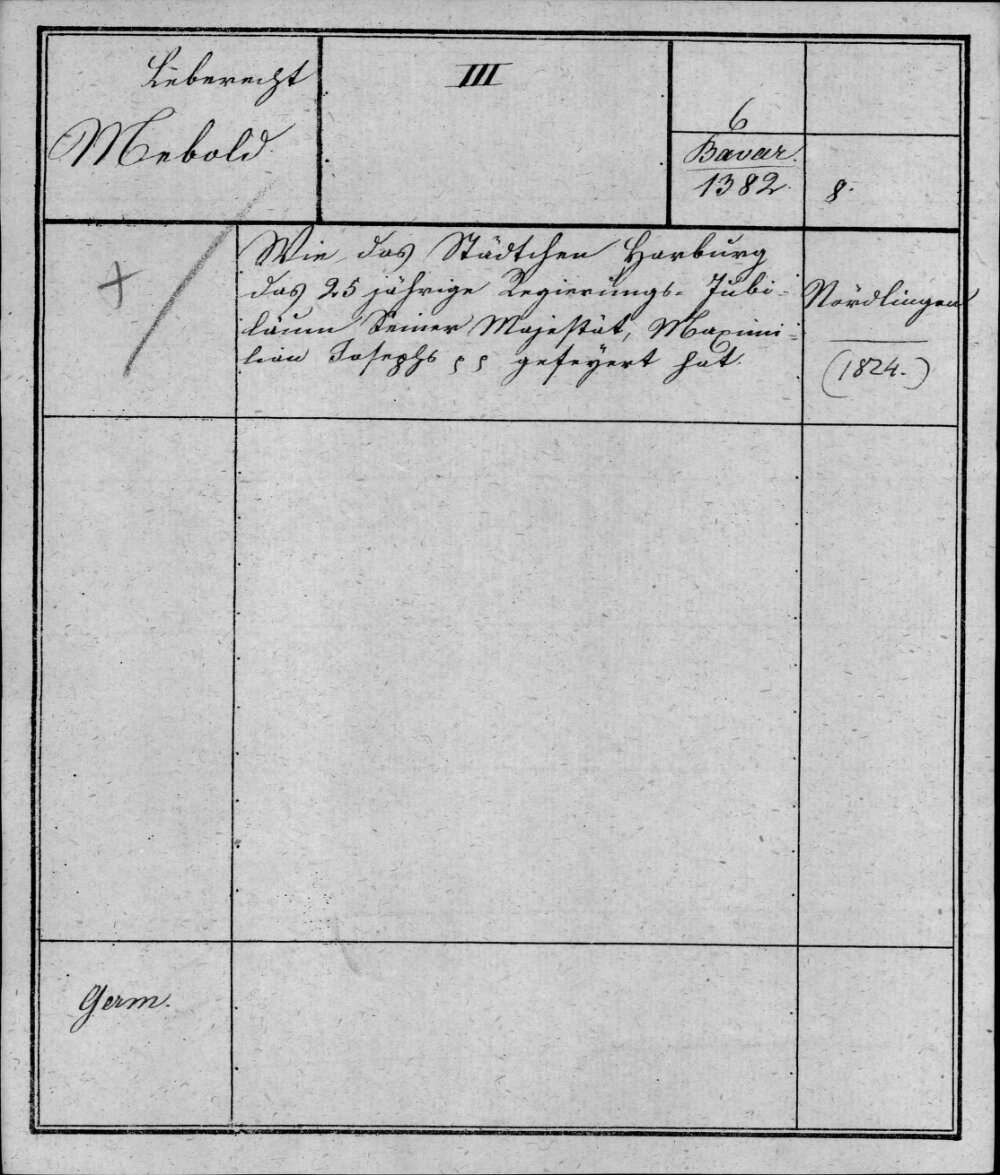 Leberecht
Mebold.
III
6
Bavar.
1382.
8.
+
Wie das Städtchen Harburg
das 25 jährige Regierungs- Jubi-
läum Seiner Majestät, Maximi-
lian Josephs pp gefeyert hat.
Nördlingen
(1824.)
Germ.